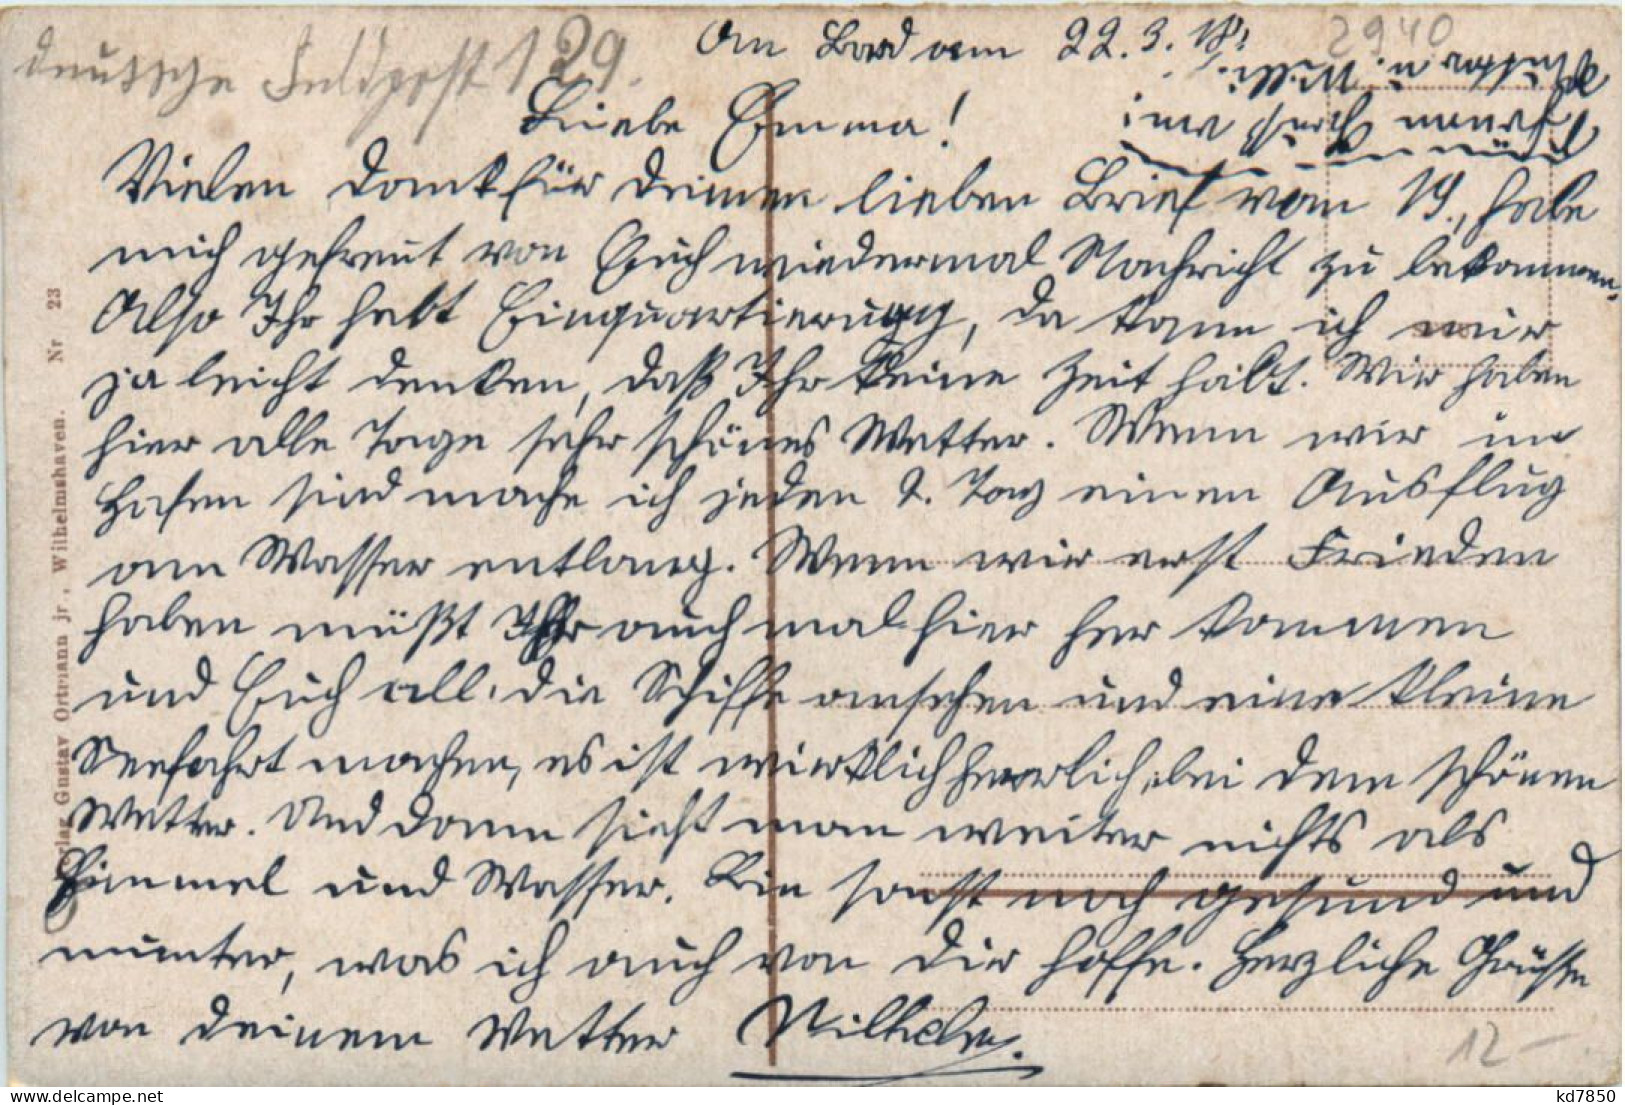 deutsche Feldpost 129.
2940
An Bord am 22.3.18.
Liebe Emma!
Vielen Dank für deinen lieben Brief vom 19., habe
mich gefreut von Euch wiedermal Nachricht zu bekommen.
Also Ihr habt Einquartierung, da kann ich mir
ja leicht denken, daß Ihr keine Zeit habt. Wir haben
hier alle Tage sehr schönes Wetter. Wenn wir im
Hafen sind mache ich jeden 2. Tag einen Ausflug
am Wasser entlang. Wenn wir erst Frieden
haben müßt Ihr auch mal hier her kommen
und Euch all. die Schiffe ansehen und eine kleine
Seefahrt machen, es ist wirklich herrlich, bei dem schönen
Wetter. Und dann sieht man weiter nichts als
Himmel und Wasser. Bin sonst noch gesund und
munter, was ich auch von Dir hoffe. Herzliche Grüße
von deinem Vetter Wilhelm.
Gruß an
Mutter u. Willi.
Verlag Gustav Ortmann jr., Wilhelmshaven. Nr 23
12 –
kd7850